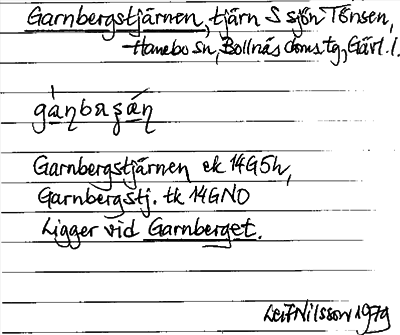 Garnbergstjärnen, tjärn S sjön Tönsen,
Hanebo sn, Bollnäs doms.tg, Gävl. l.
Garnbergstjärnen ek 14G5h,
Garnbergstj. tk 14GNO
Ligger vid Garnberget.
Leif Nilsson 1979